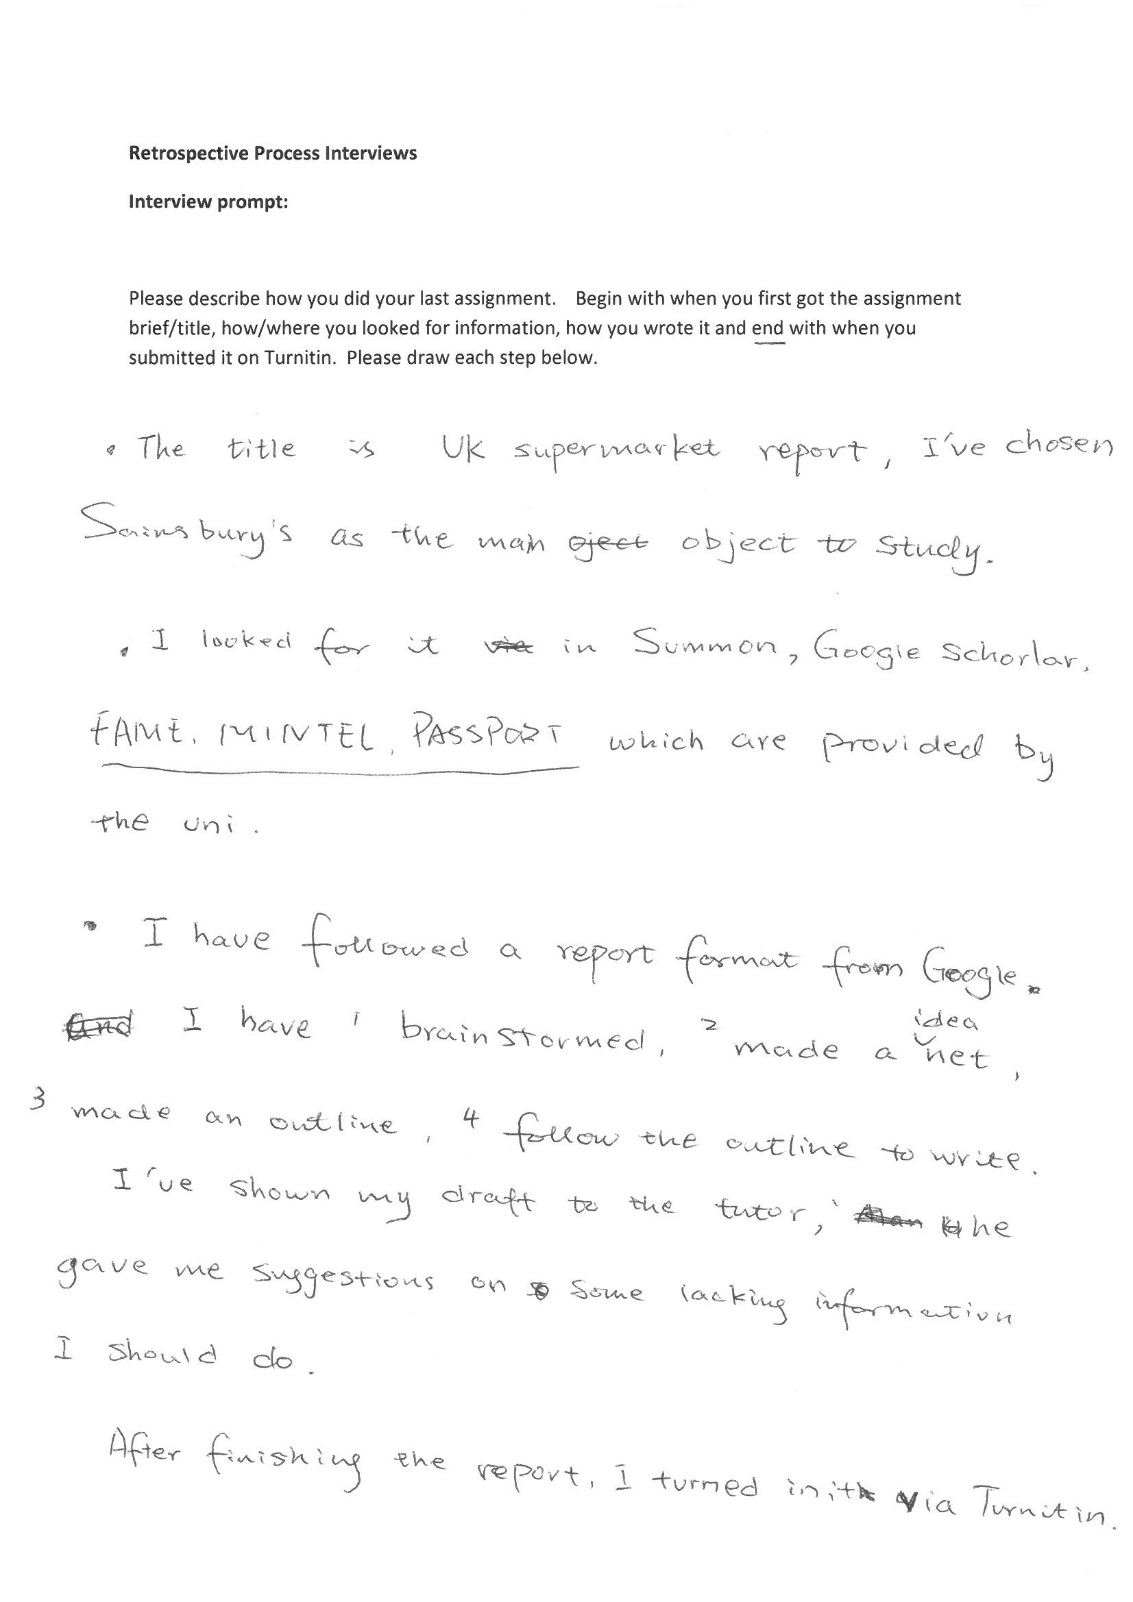 Retrospective Process Interviews
Interview prompt:
Please describe how you did your last assignment. Begin with when you first got the assignment
brief/title, how/where you looked for information, how you wrote it and end with when you
submitted it on Turnitin. Please draw each step below.
• The title is UK supermarket report, I've chosen
Sainsbury's as the main oject object to study.
• I looked for it via in Summon, Google Schorlar,
FAME, MINTEL, PASSPORT which are provided by
the uni.
• I have followed a report format from Google.
And I have 1 brainstormed, 2 made a idea net,
3 made an outline, 4 follow the outline to write.
I've shown my draft to the tutor, he
gave me suggestions on some lacking information
I should do.
After finishing the report, I turned in it via Turnitin.